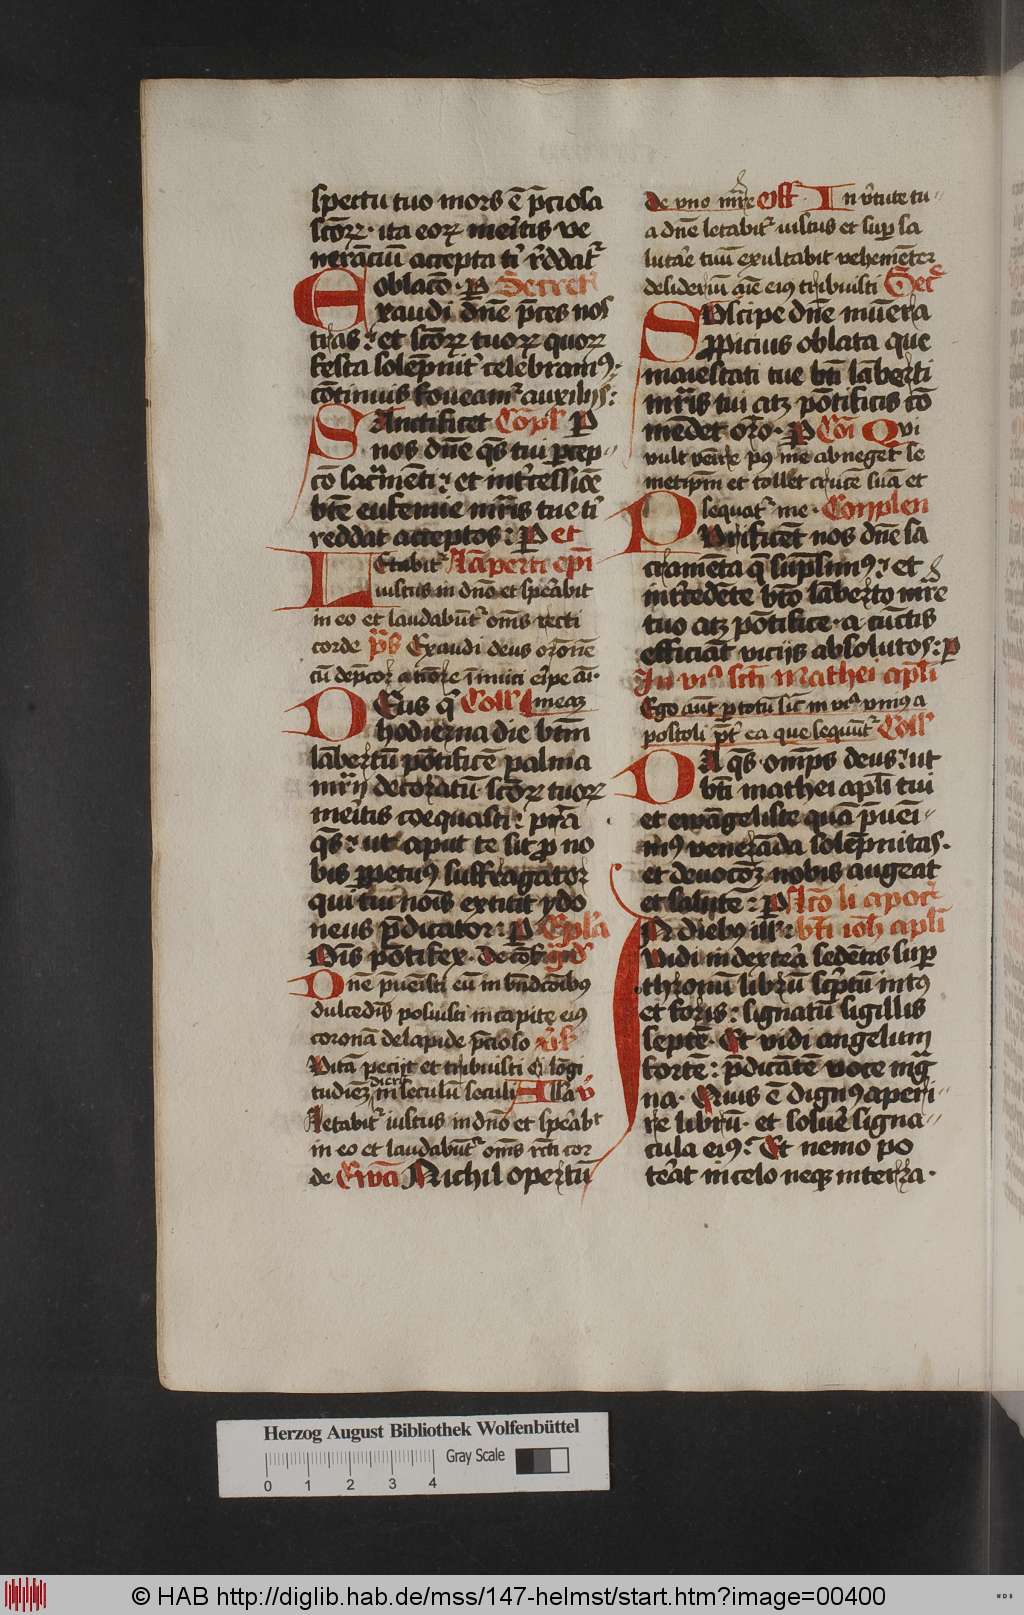 spectu tuo mors ē p̄ciosa
scō⁊ꝝ · ita eoꝝ meritis ve
nerāciū accepta tͥ reddatᷣ
oblacō · ꝑ Secret
Exaudi dn̄e p̄ces nos
tras : et scō⁊ꝝ tuoꝝ quoꝝ
festa solēpnitͥ celebramꝰ ·
cōtinuis foveamᷣ auxilijs :
SAnctificet Cōpl P
nos dn̄e q̄s tui ꝑcep-
cō sac̄mēti : et int̄cessiōe
btē eufemie mr̄is tue tͥ
reddat acceptos : P et
LEtabitᷣ Lāperti ep̄i
iustus in dn̄o et sperabit
in eo et laudabūtᷣ om̄s recti
corde p̄s Exaudi deus orōnē
cū dep̄cor a timore inimici eripe aī ·
DEus qͥ Coll meaꝫ
hodierna die btm̄
lābertū pōtificē palma
mr̄ij decoratū scō⁊ꝝ tuoꝝ
meritis coequasti : p̄sta
q̄s : ut apud te sit ꝓ no
bis ꝑpetuꝰ suffragator
qui tui nois extitit ydo
neus p̄dicator : P Epla
Om̄s pōtifex · de cōf gͣd
Dn̄e p̄uēisti eū in bn̄dcōibꝰ
dulcedīs posuisti in capite eiꝰ
coronā de lapide p̄cioso v̄s
Vitā peciјt et tribuisti ei lōgi
tudieꝫ dieꝝ in seculū seculi Alla v̄
Letabitᷣ iustus in dn̄o et sperabᷣt
in eo et laudabūtᷣ om̄s rcti cor
de Ewā Nichil opertū
de vno mr̄e Off In v̄tute tu-
a dn̄e letabitᷣ iustus et suꝑ sa
lutare tuū exultabit vehemēter
desideriū aīe eiꝰ tribuisti Secͬ
SUscipe dn̄e munera
ꝓpicius oblata que
maiestati tue bti lāberti
mr̄is tui atꝫ pōtificis cō
mēdet orō · P Cōi Qvi
vult venire pꝰ me abneget se
metip̄m et tollet crucē suā et
sequatᷣ me · Conplen
PUrificēt nos dn̄e sa
cramēta q̄ sūpsimꝰ : et
int̄cedēte bto lāberto mr̄e
tuo atꝫ pōtifice · a cūctis
efficiāt vicijs absolutos : P
In vīᷣ sct̄i Mathei ap̄li
Ego aut̄ ꝑ totū sic̄ in vīᷣ vniꝰ a
postoli p̄t ea que sequūtᷣ Coll
DA q̄s om̄ps deus : ut
bti mathei ap̄li tui
et ewāgeliste quā p̄uēi-
mꝰ venerāda solēpnitas ·
et devocōꝫ nobis augeat
et salutē : P Lcō li apocͣ
IN diebꝰ ill : bti ioh ap̄li
Vidi in dextera sedētis suꝑ
thronū librū sc̄ptū intꝰ
et foris : signatū sigillis
septē · Et vidi angelum
fortē : p̄dicātē voce mg
na · Quis ē dignꝰ aperi-
re librū · et solue signa-
cula eiꝰ : Et nemo po
terat in celo neqꝫ in terra ·
Herzog August Bibliothek Wolfenbüttel
Gray Scale
0 1 2 3 4
© HAB http://diglib.hab.de/mss/147-helmst/start.htm?image=00400